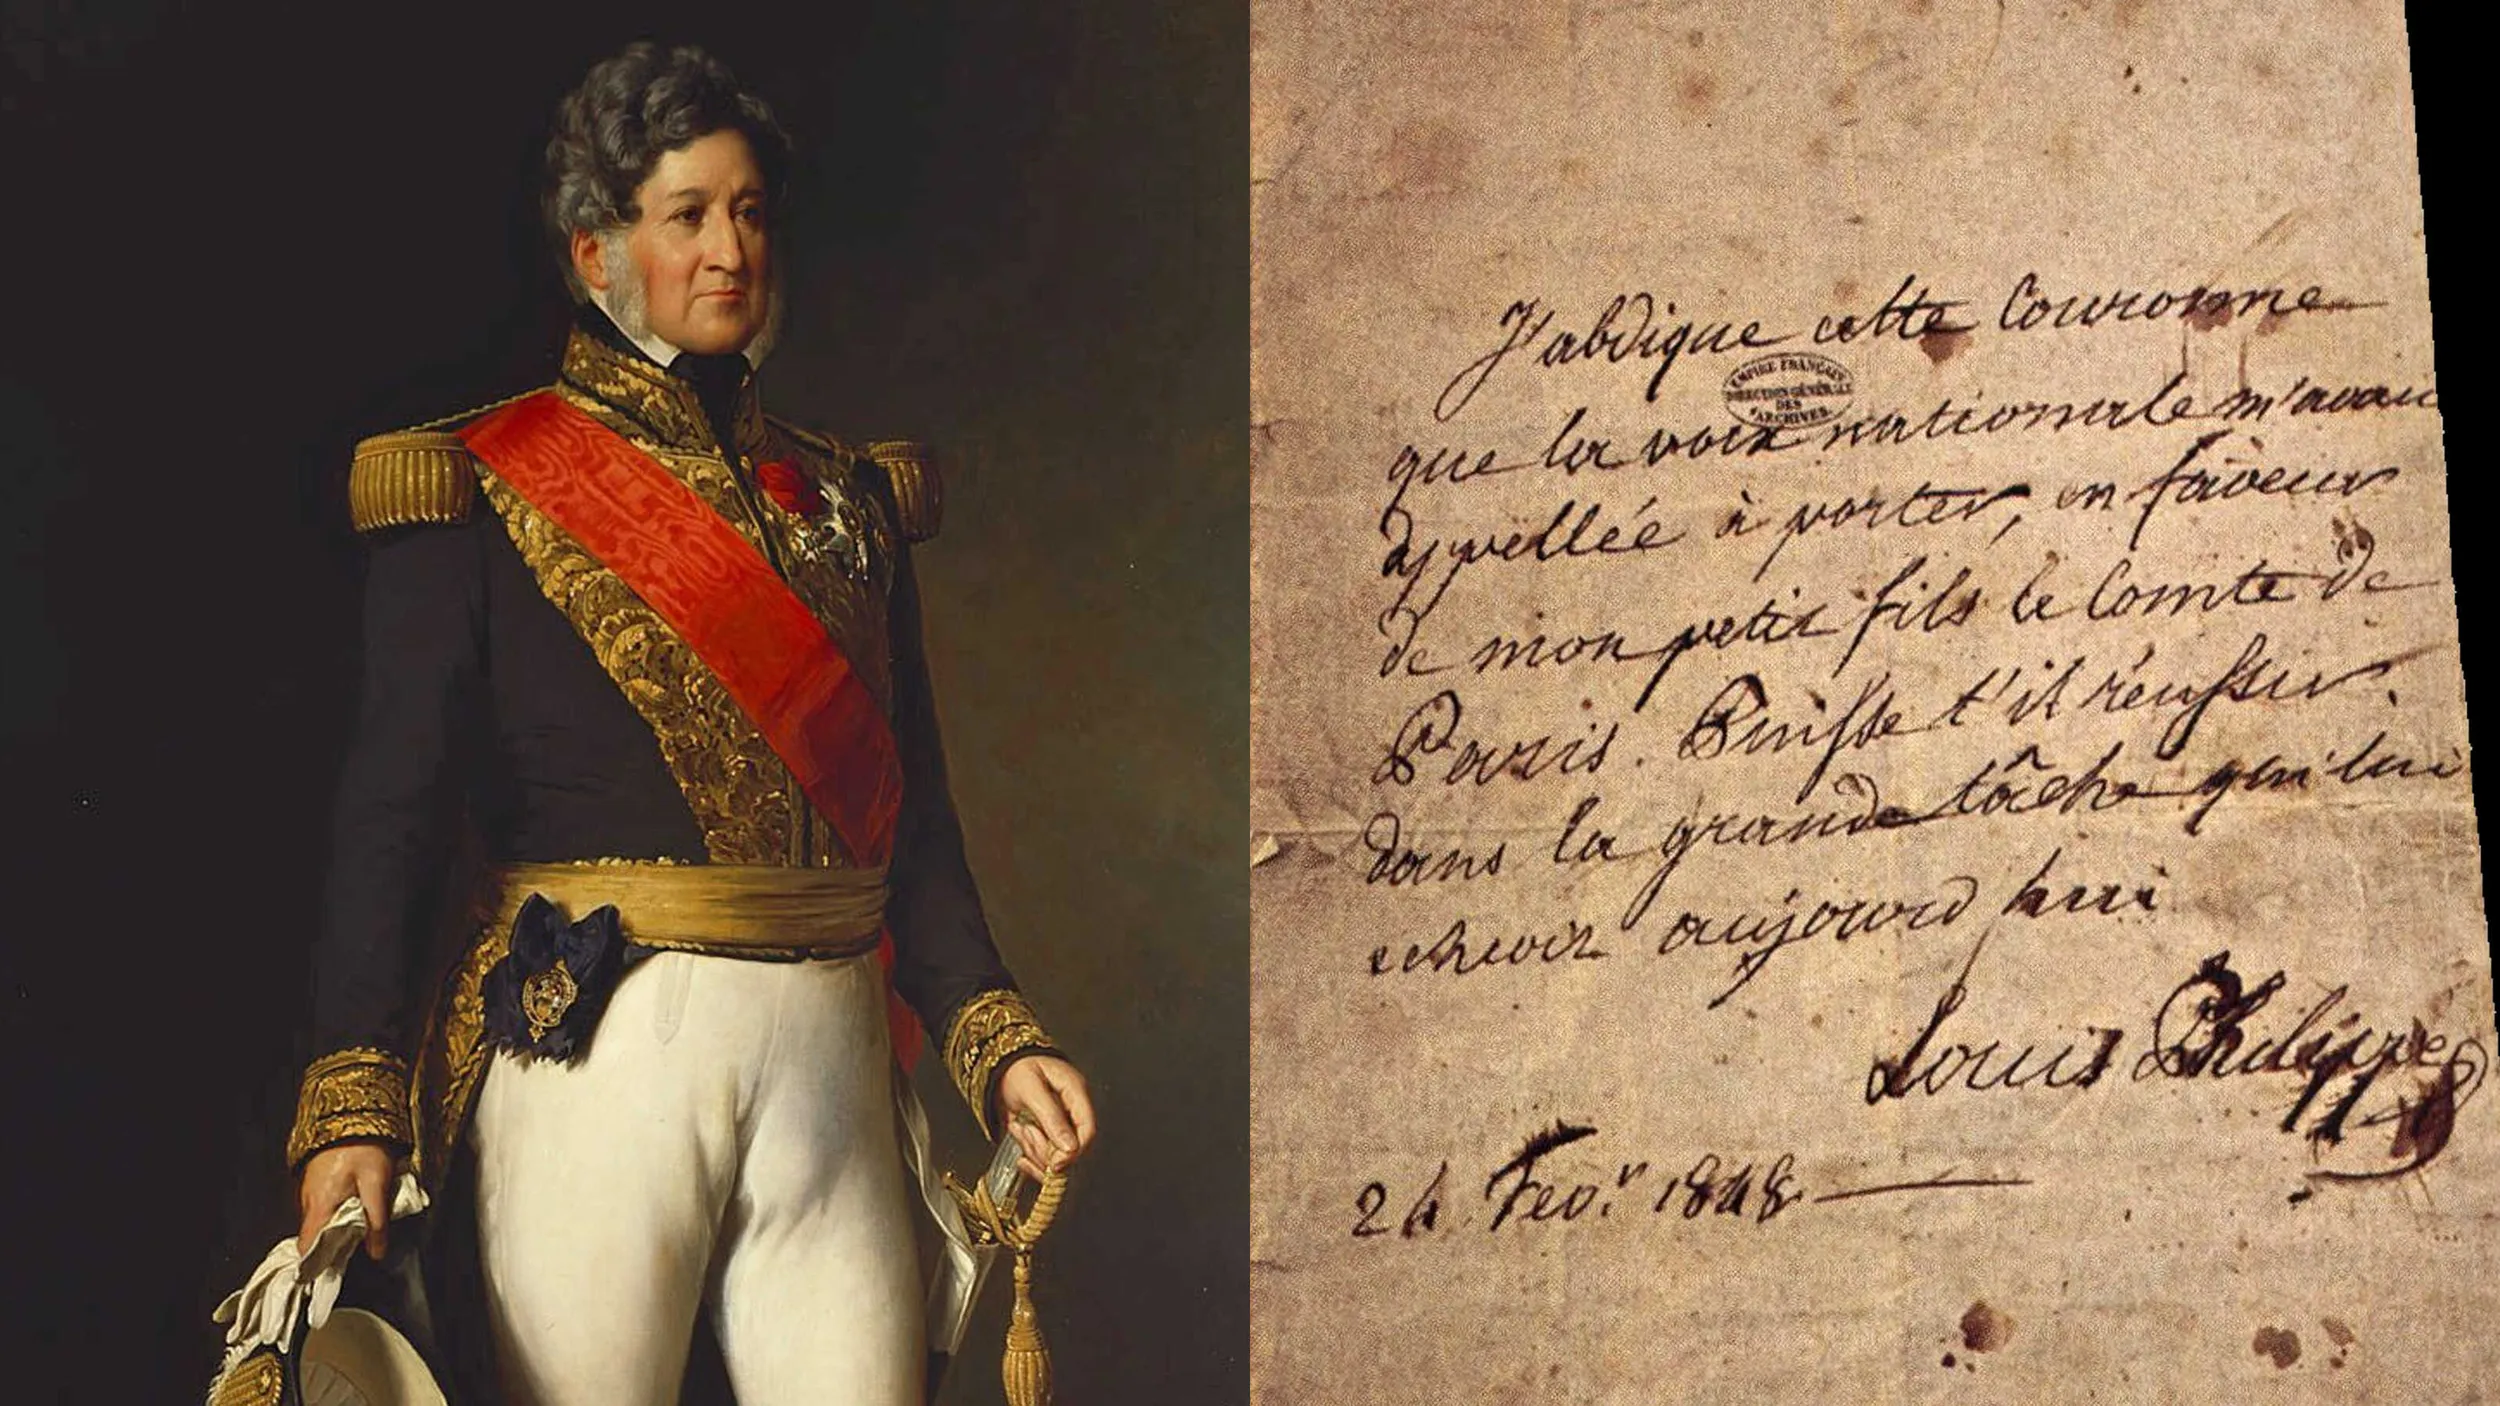 J'abdique cette Couronne
EMPIRE FRANÇAIS
DIRECTION GÉNÉRALE
DES
ARCHIVES
que la voix nationale m'avait
appellée à porter, en faveur
de mon petit fils le Comte de
Paris. Puisse t'il réussir
dans la grande tâche qui lui
echeoit aujourd'hui
Louis Philippe
24 Fev.r 1848